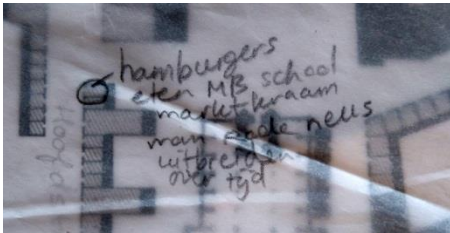 hamburgers
eten MB school
marktkraam
man rode neus
uitbreiden
over tijd
Hoofds